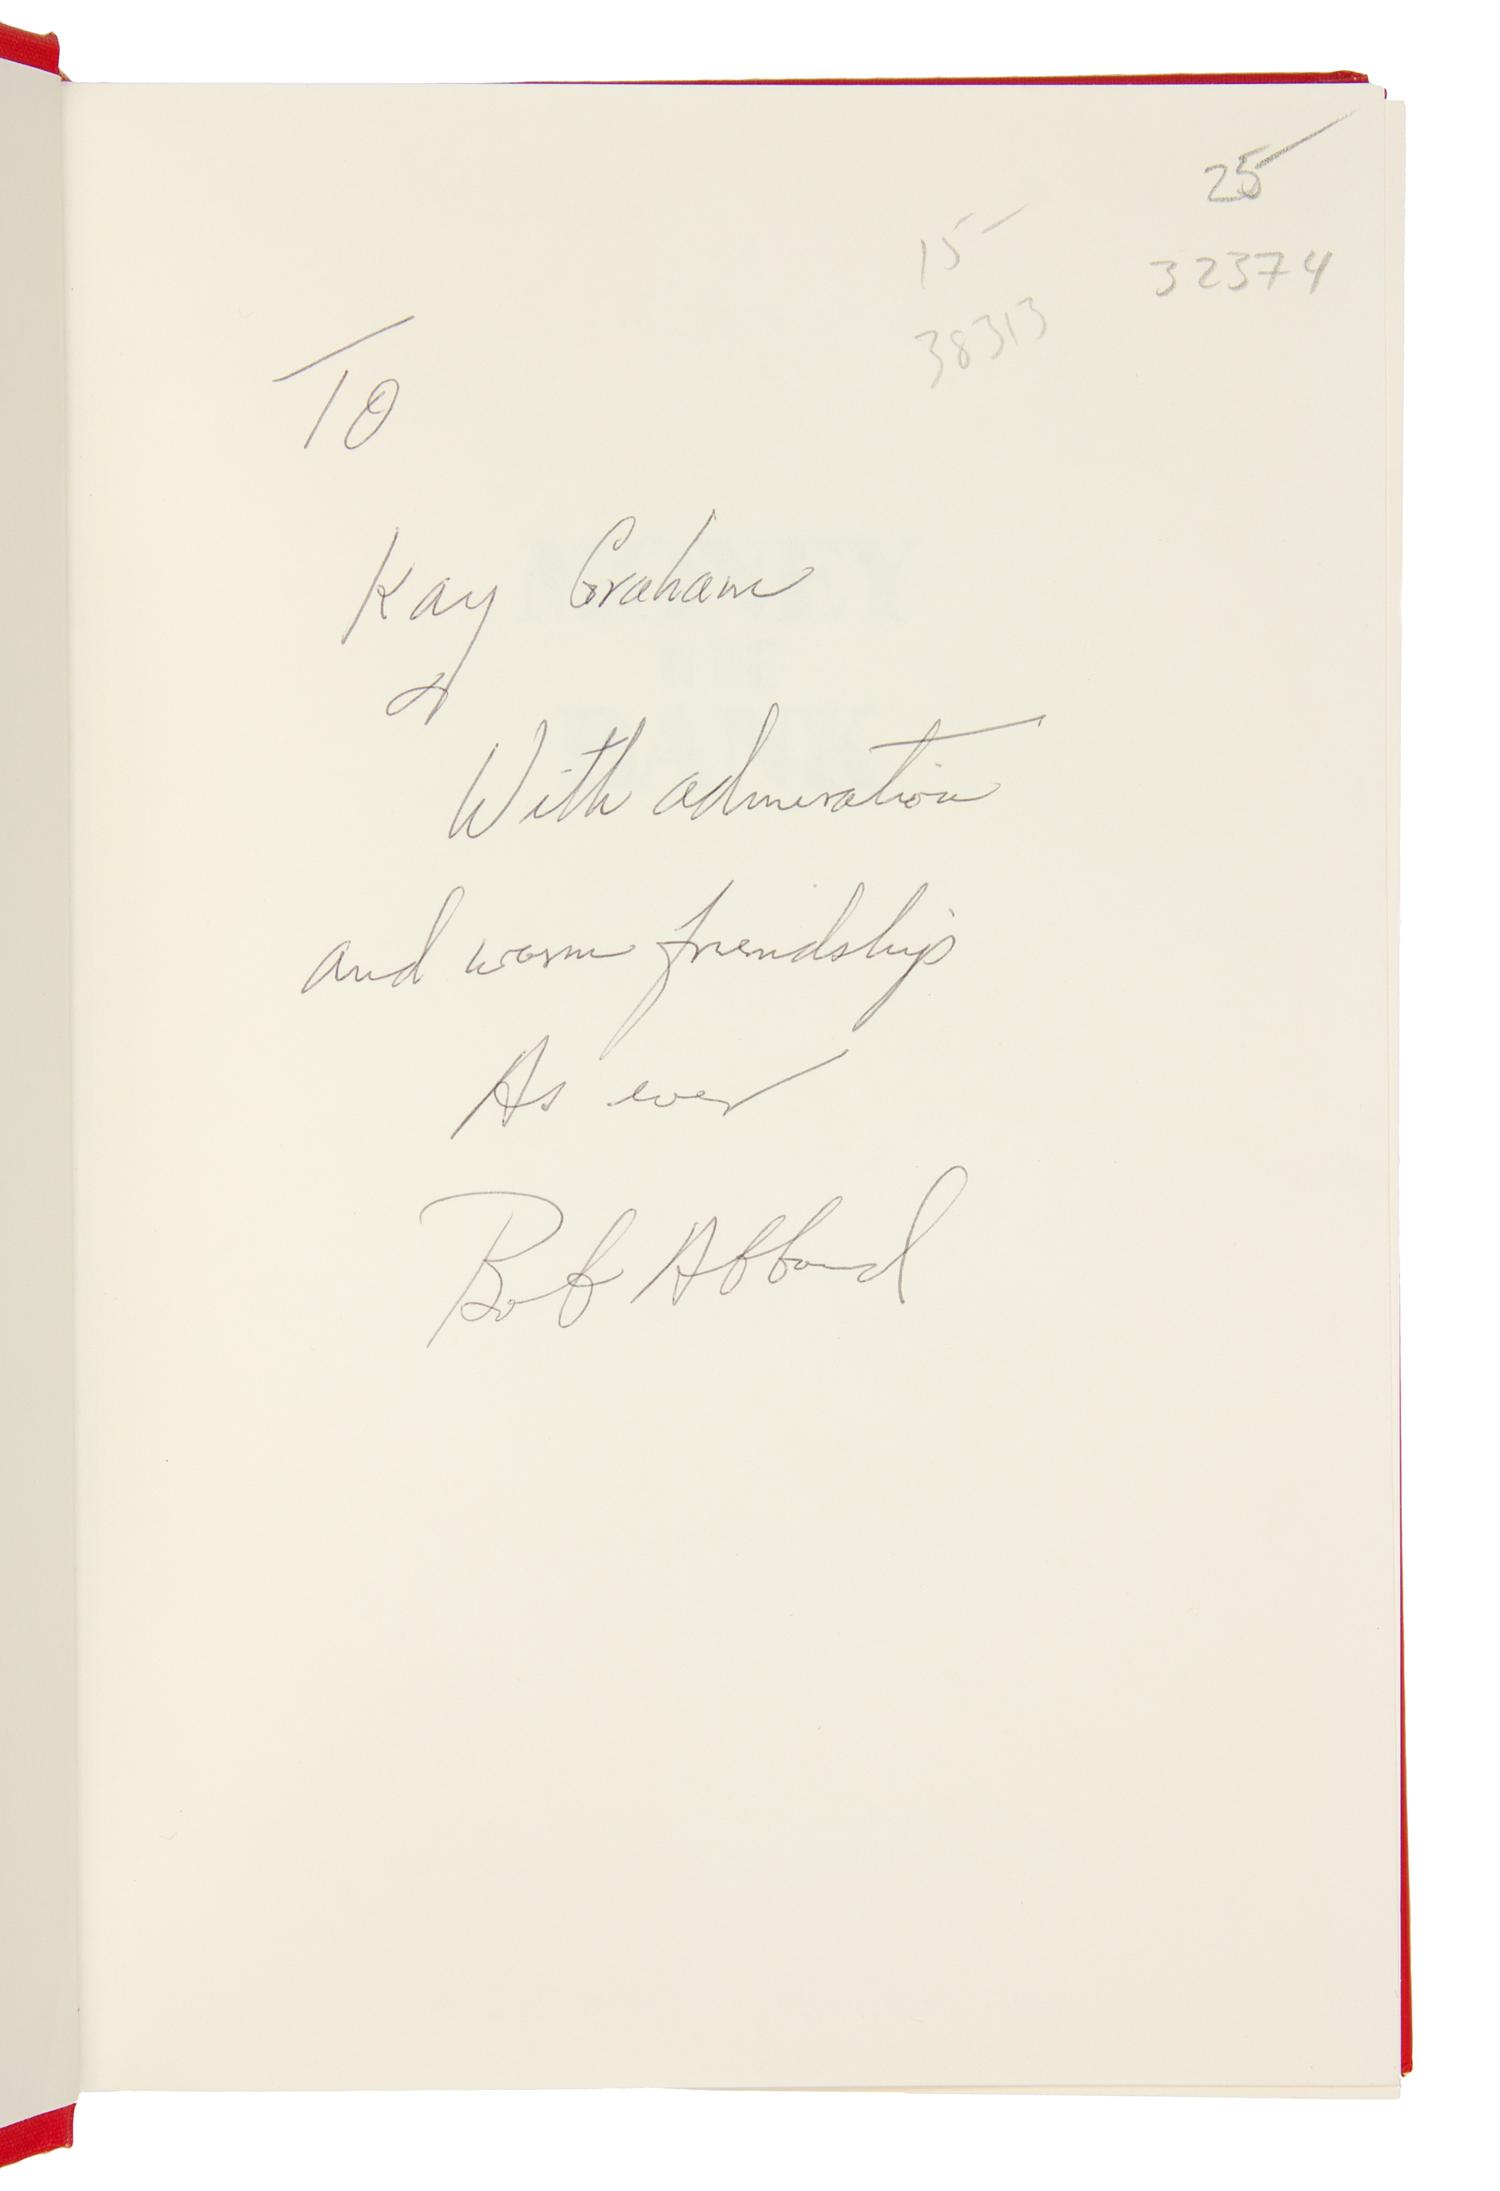 25
15
32374
38313
To
Kay Graham
With admiration
and warm friendship
As ever
Bob Abboud